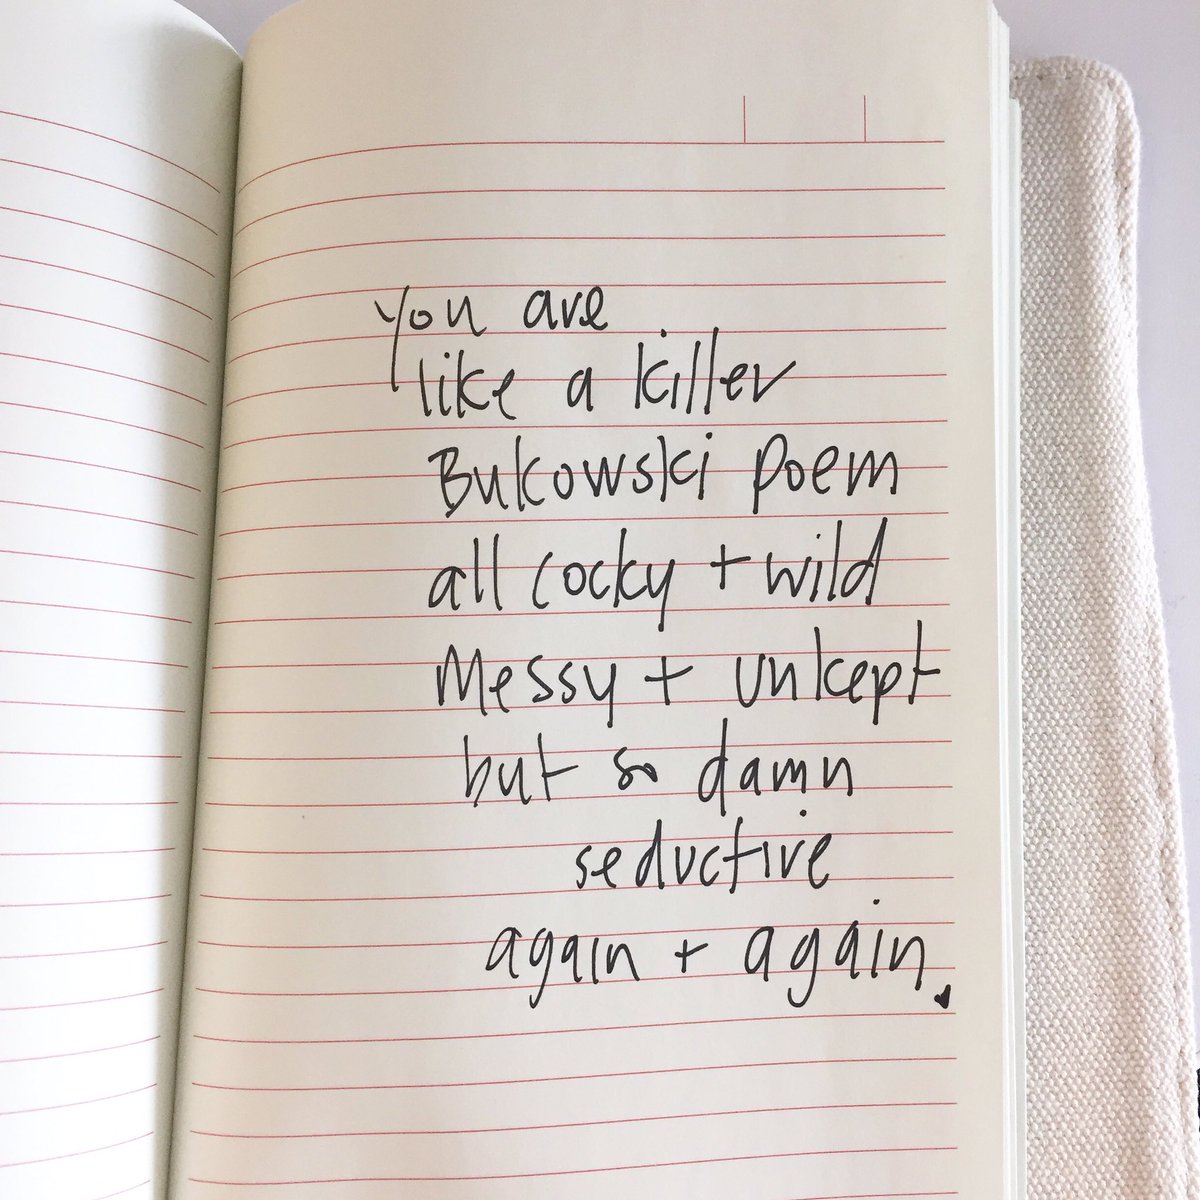 you are
like a killer
Bukowski poem
all cocky + wild
messy + unkept
but so damn
seductive
again + again.